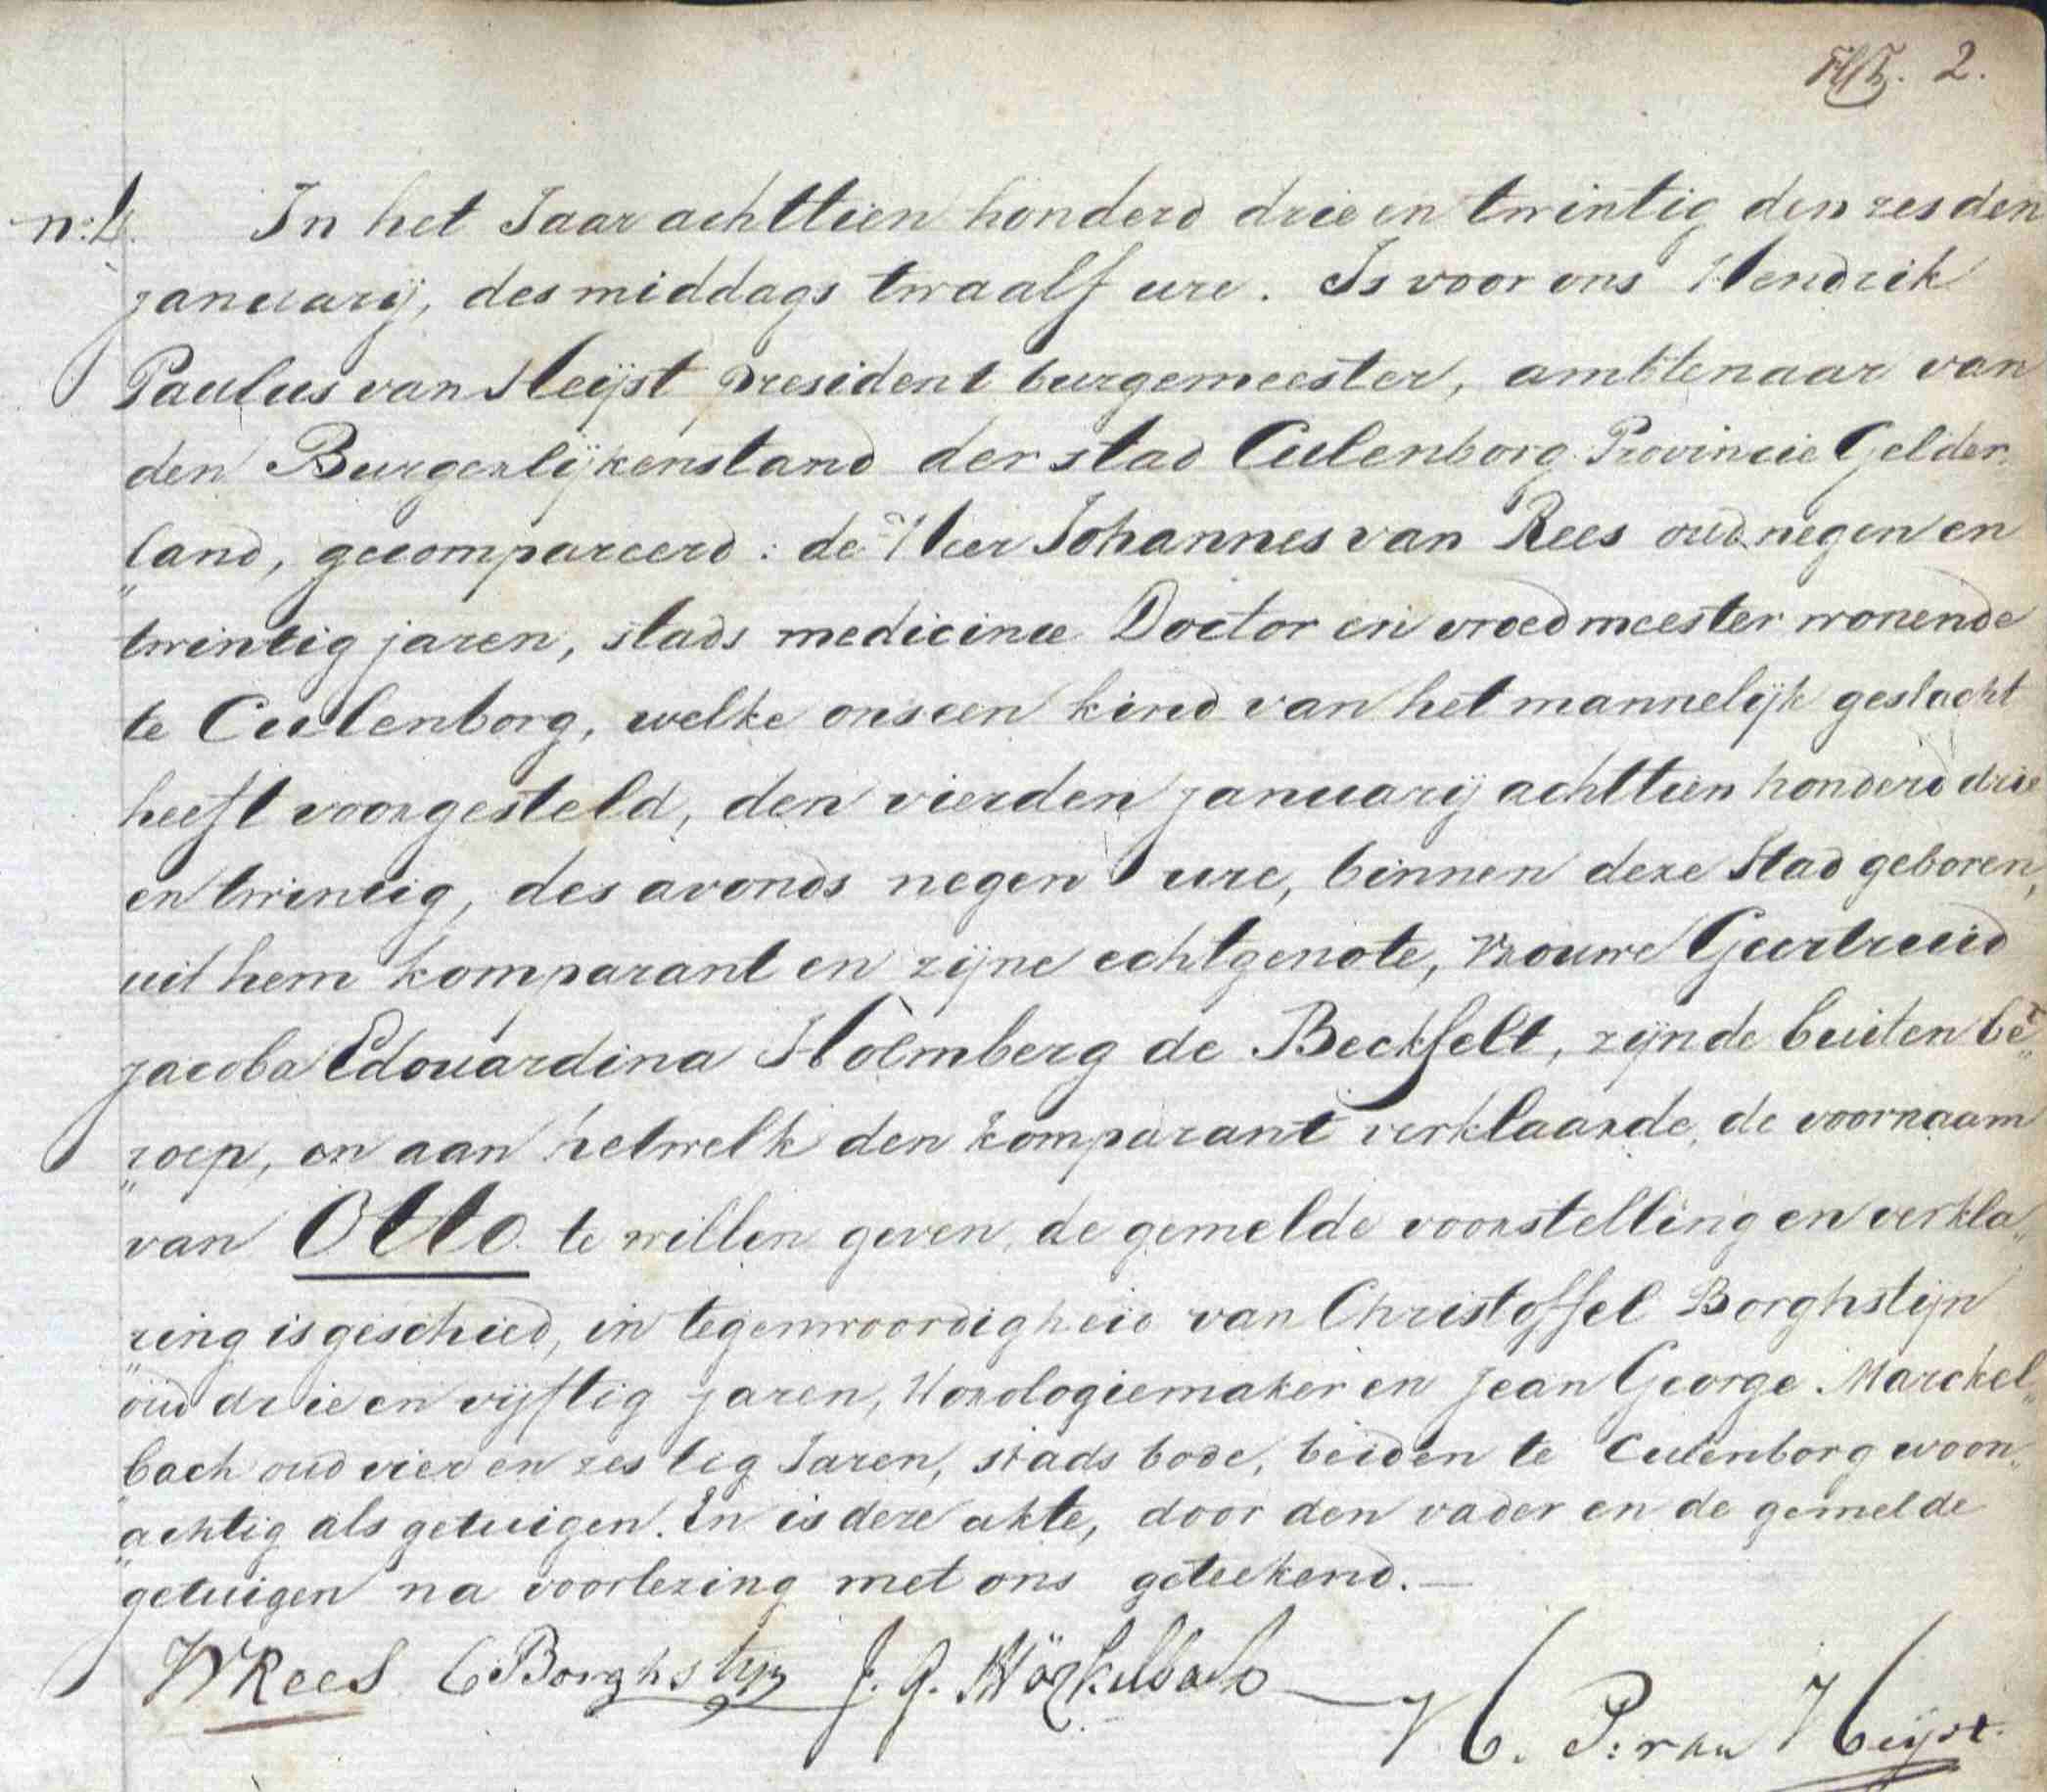 2.
n: 4. In het Jaar achttien honderd drie en twintig den zesden
januarij, des middags twaalf ure. Is voor ons Hendrik
Paulus van Heijst president burgemeester, ambtenaar van
den Burgerlijkenstand der stad Culenborg Provincie Gelder„
„land, gecompareerd: de Heer Johannes van Rees oud negen en
twintig jaren, stads medicinæ Doctor en vroedmeester wonende
te Culenborg, welke ons een kind van het mannelijk geslacht
heeft voorgesteld, den vierden januarij achttien honderd drie
en twintig, des avonds negen ure, binnen deze Stad geboren,
uit hem komparant en zijne echtgenote, Vrouwe Geertruid
jacoba Edouardina Holmberg de Beckfelt, zijnde buiten be„
„roep, en aan hetwelk den komparant verklaarde, de voornaam
van Otto te willen geven, de gemelde voorstelling en verkla„
„ring is geschied, in tegenwoordigheid van Christoffel Borghstijn
oud drie en vijftig jaren, Horologiemaker en Jean George Marckel„
„bach oud vier en zestig Jaren, stads bode, beiden te Culenborg woon„
„achtig als getuigen. En is deze akte, door den vader en de gemelde
getuigen na voorlezing met ons geteekend.—
JVRees C Borghstijn J. G. Möckelbach H. P. van Heijst